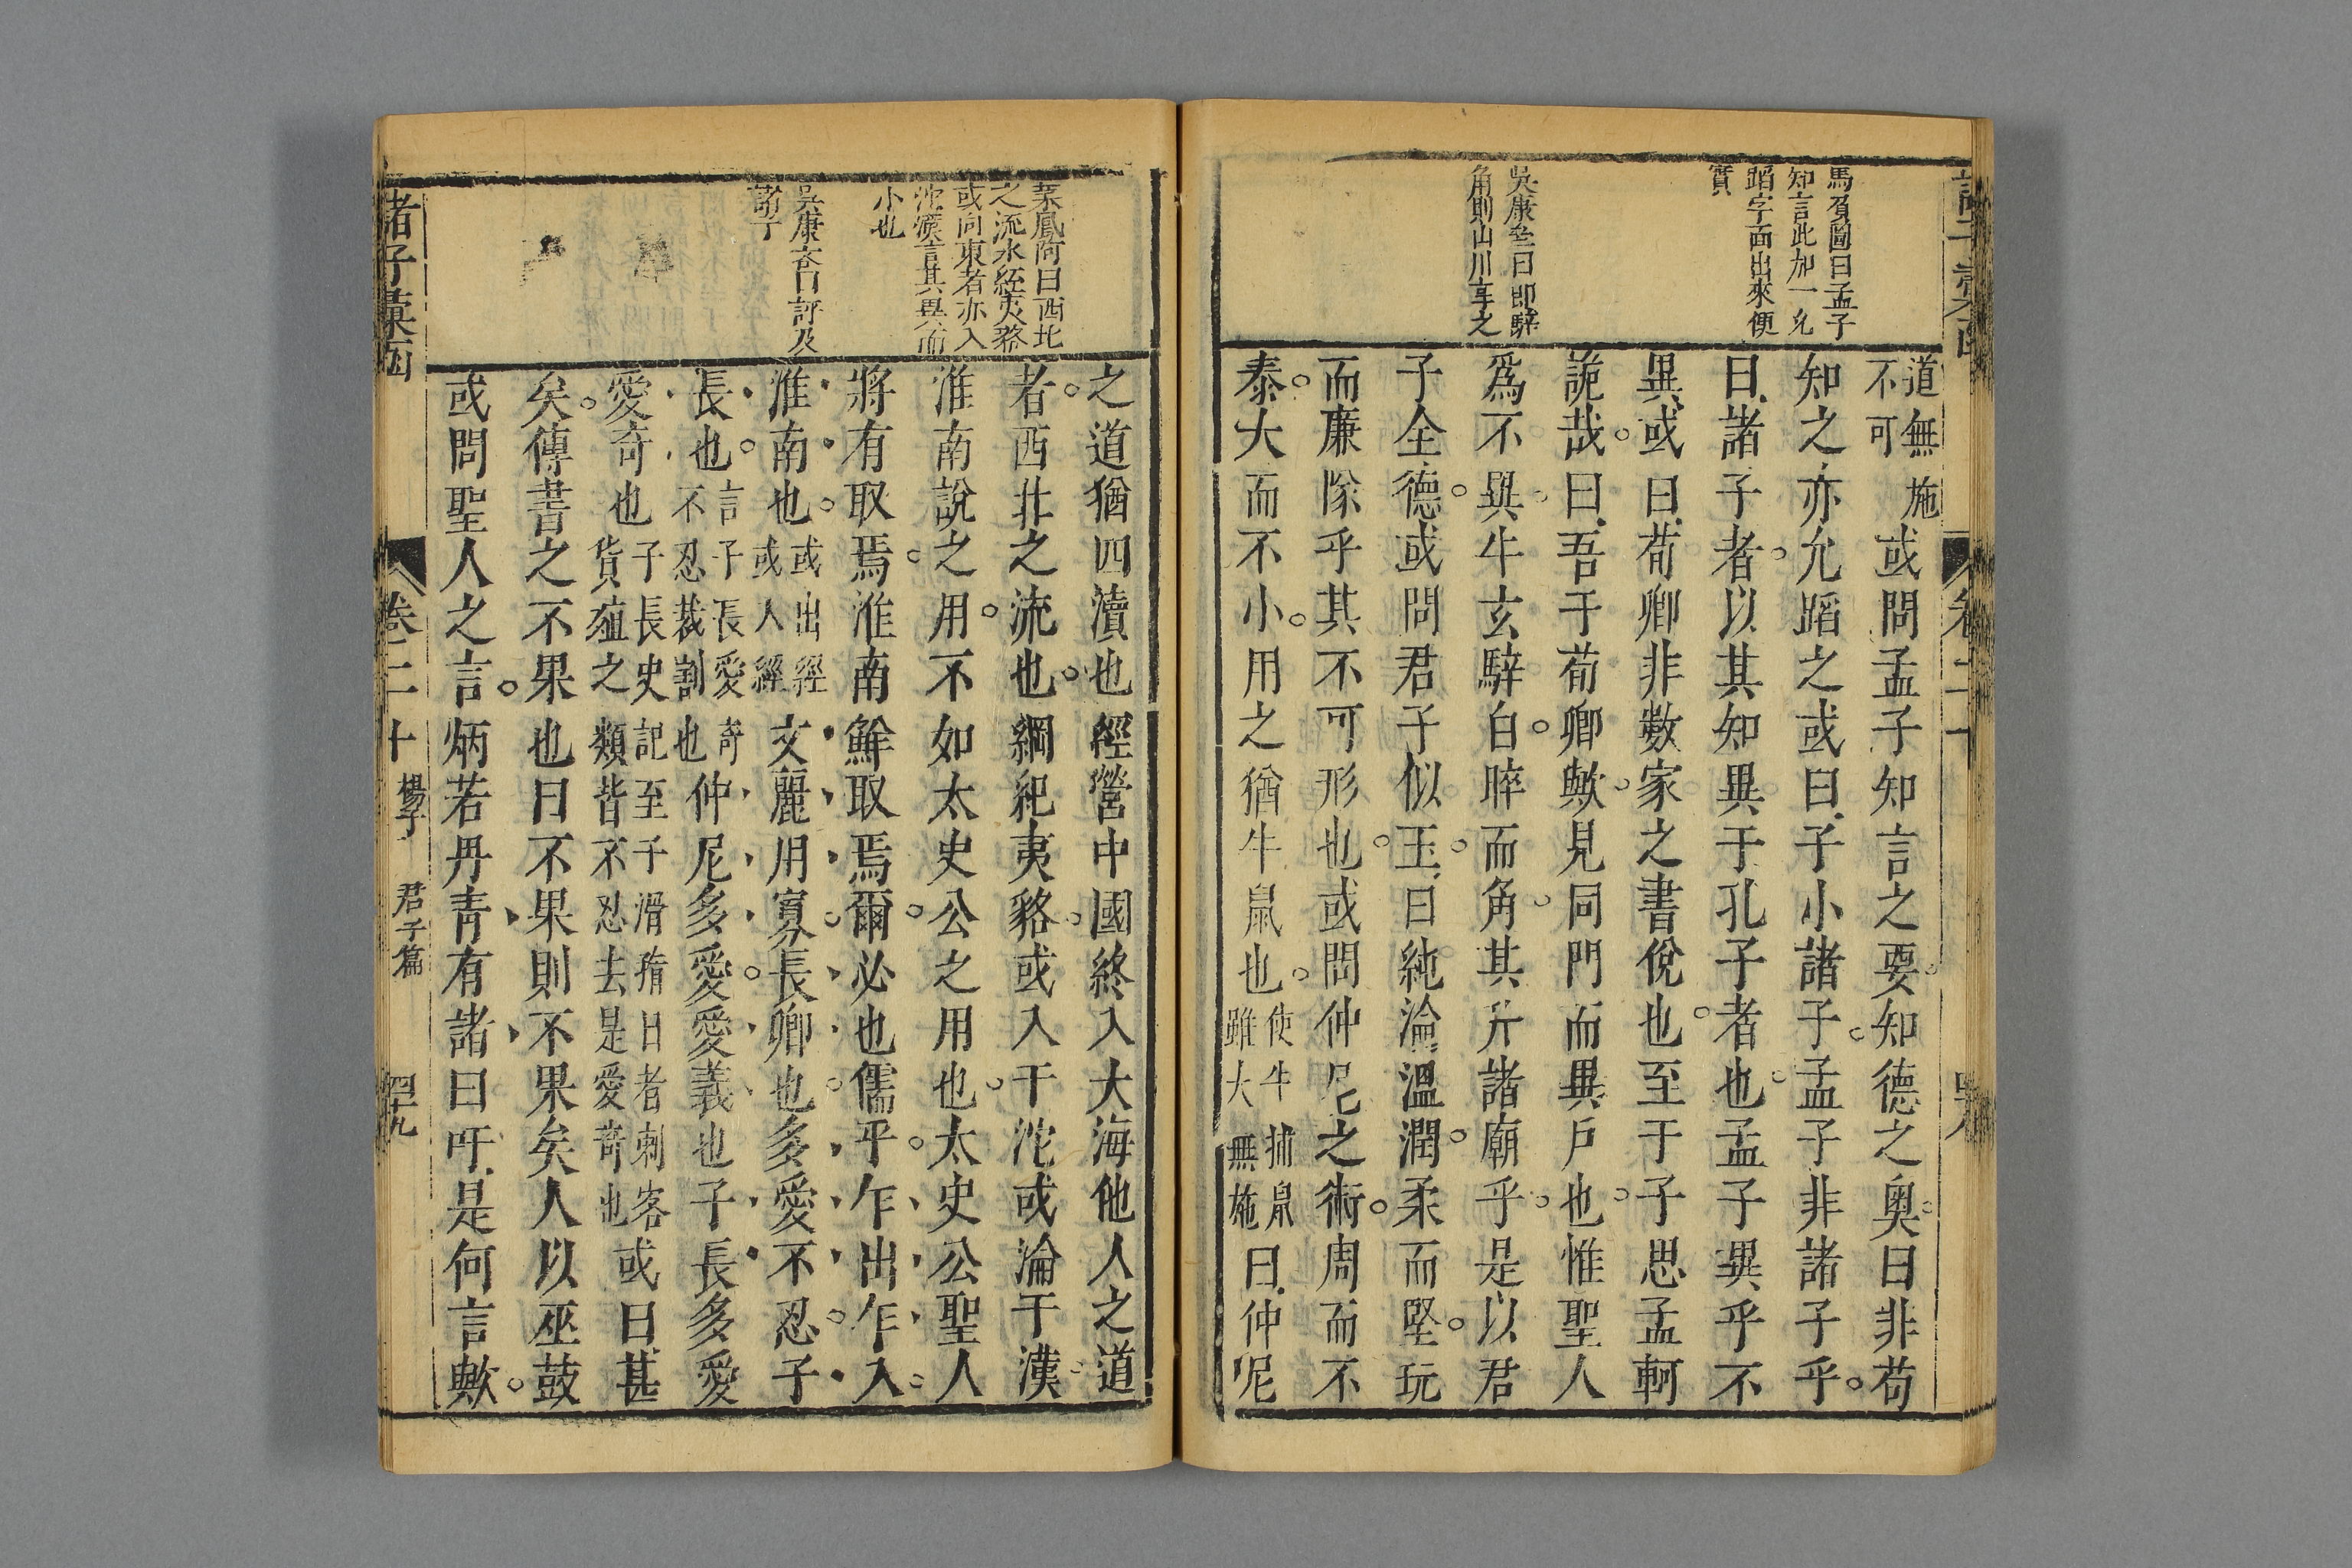 馬頁圖曰孟子
知言此加一允
蹈字面出來便
實
吳康叁曰即騂
角則山川享之
道無施
不可
或問孟子知言之要知德之奧曰非苟
知之亦允蹈之或曰子小諸子孟子非諸子乎
曰諸子者以其知異于孔子者也孟子異乎不
異或曰荀卿非數家之書侻也至于子思孟軻
詭哉曰吾于荀卿歟見同門而異戶也惟聖人
爲不異牛玄騂白睟而角其升諸廟乎是以君
子全德或問君子似玉曰純淪溫潤柔而堅玩
而廉隊乎其不可形也或問仲尼之術周而不
泰大而不小用之猶牛鼠也
使牛捕鼠
雖大無施
曰仲尼
之流水經夷貉
或向東者亦入
沱漢言其異而
小也
諸子
之道猶四瀆也經營中國終入大海他人之道
者西北之流也綱紀夷貉或入于沱或淪于漢
淮南說之用不如太史公之用也太史公聖人
將有取焉淮南鮮取焉爾必也儒乎乍出乍入
淮南也
或出經
或人經
文麗用寡長卿也多愛不忍子
長也
言子長愛奇
不忍裁割也
仲尼多愛愛義也子長多愛
愛奇也
子長史記至于滑稽日者刺客
貨殖之類皆不忍去是愛奇也
或曰甚
矣傳書之不果也曰不果則不果矣人以巫鼓
或問聖人之言炳若丹青有諸曰吁是何言歟
諸子彙函
卷二十
楊子
君子篇
四十九